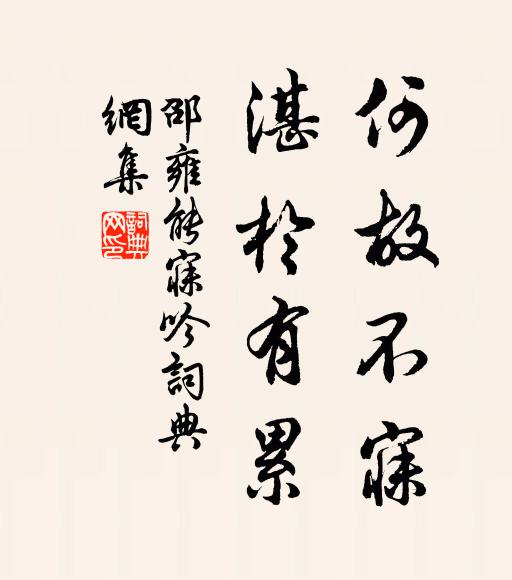 何故不寐
湛於有累
邵雍能寐吟詞典
網集
詞典網印